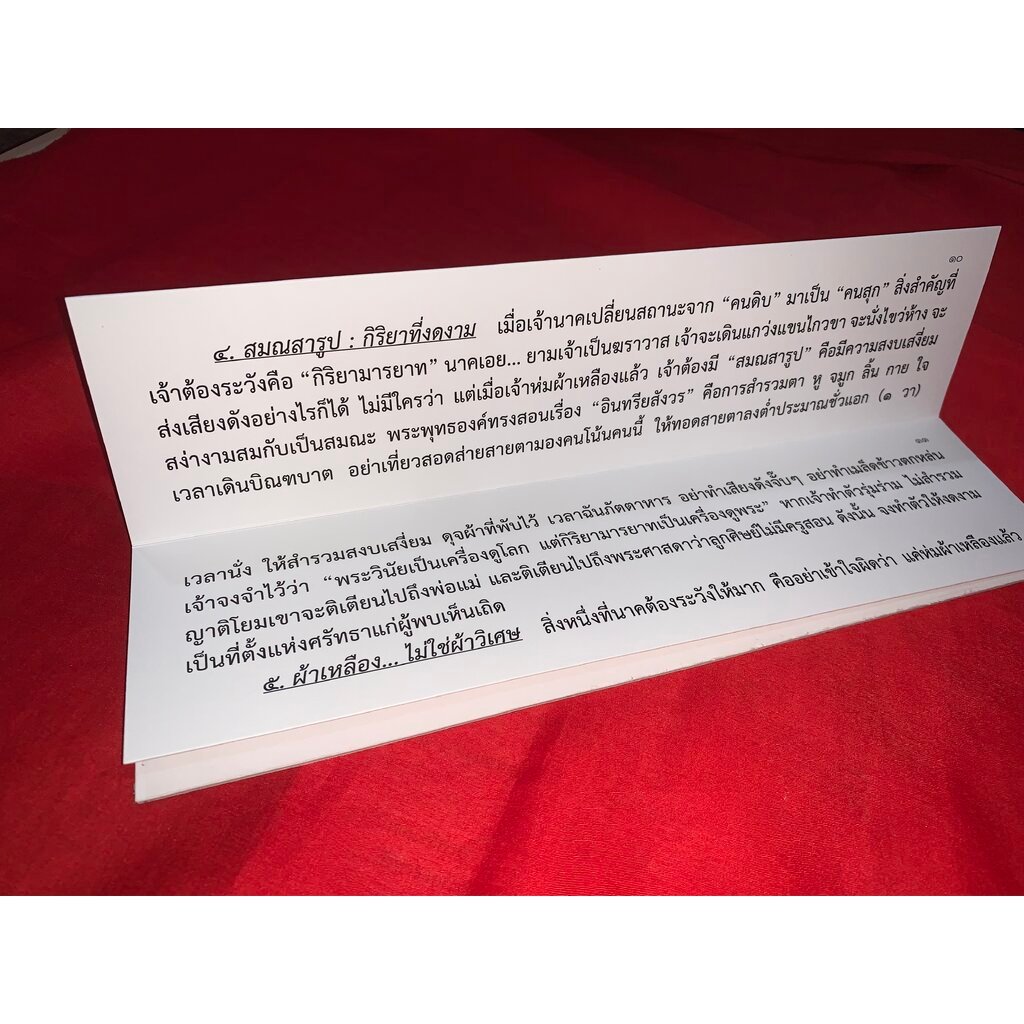 ๑๐
๔. สมณสารูป : กิริยาที่งดงาม เมื่อเจ้านาคเปลี่ยนสถานะจาก “คนดิบ” มาเป็น “คนสุก” สิ่งสำคัญที่
เจ้าต้องระวังคือ “กิริยามารยาท” นาคเอย... ยามเจ้าเป็นฆราวาส เจ้าจะเดินแกว่งแขนไกวขา จะนั่งไขว่ห้าง จะ
ส่งเสียงดังอย่างไรก็ได้ ไม่มีใครว่า แต่เมื่อเจ้าห่มผ้าเหลืองแล้ว เจ้าต้องมี “สมณสารูป” คือมีความสงบเสงี่ยม
สง่างามสมกับเป็นสมณะ พระพุทธองค์ทรงสอนเรื่อง “อินทรียสังวร” คือการสำรวมตา หู จมูก ลิ้น กาย ใจ
เวลาเดินบิณฑบาต อย่าเที่ยวสอดส่ายสายตามองคนโน้นคนนี้ ให้ทอดสายตาลงต่ำประมาณชั่วแอก (๑ วา)
๑๑
เวลานั่ง ให้สำรวมสงบเสงี่ยม ดุจผ้าที่พับไว้ เวลาฉันภัตตาหาร อย่าทำเสียงดังจั๊บๆ อย่าทำเมล็ดข้าวตกหล่น
เจ้าจงจำไว้ว่า “พระวินัยเป็นเครื่องดูโลก แต่กิริยามารยาทเป็นเครื่องดูพระ” หากเจ้าทำตัวรุ่มร่าม ไม่สำรวม
ญาติโยมเขาจะติเตียนไปถึงพ่อแม่ และติเตียนไปถึงพระศาสดาว่าลูกศิษย์ไม่มีครูสอน ดังนั้น จงทำตัวให้งดงาม
เป็นที่ตั้งแห่งศรัทธาแก่ผู้พบเห็นเถิด
๕. ผ้าเหลือง... ไม่ใช่ผ้าวิเศษ สิ่งหนึ่งที่นาคต้องระวังให้มาก คืออย่าเข้าใจผิดว่า แค่ห่มผ้าเหลืองแล้ว